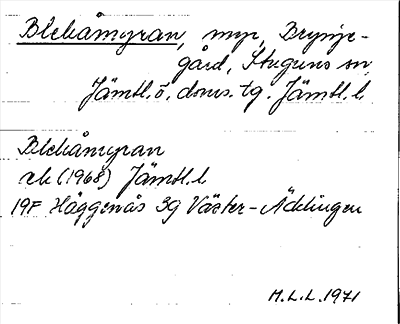 Blekåmyran, myr, Brynje-
gård, Stuguns sn,
Jämtl. ö. doms. tg. Jämtl. l.
Blekåmyran
ek (1968) Jämtl. l
19F Häggenås 3g Väster-Äcklingen
H.L.L. 1971